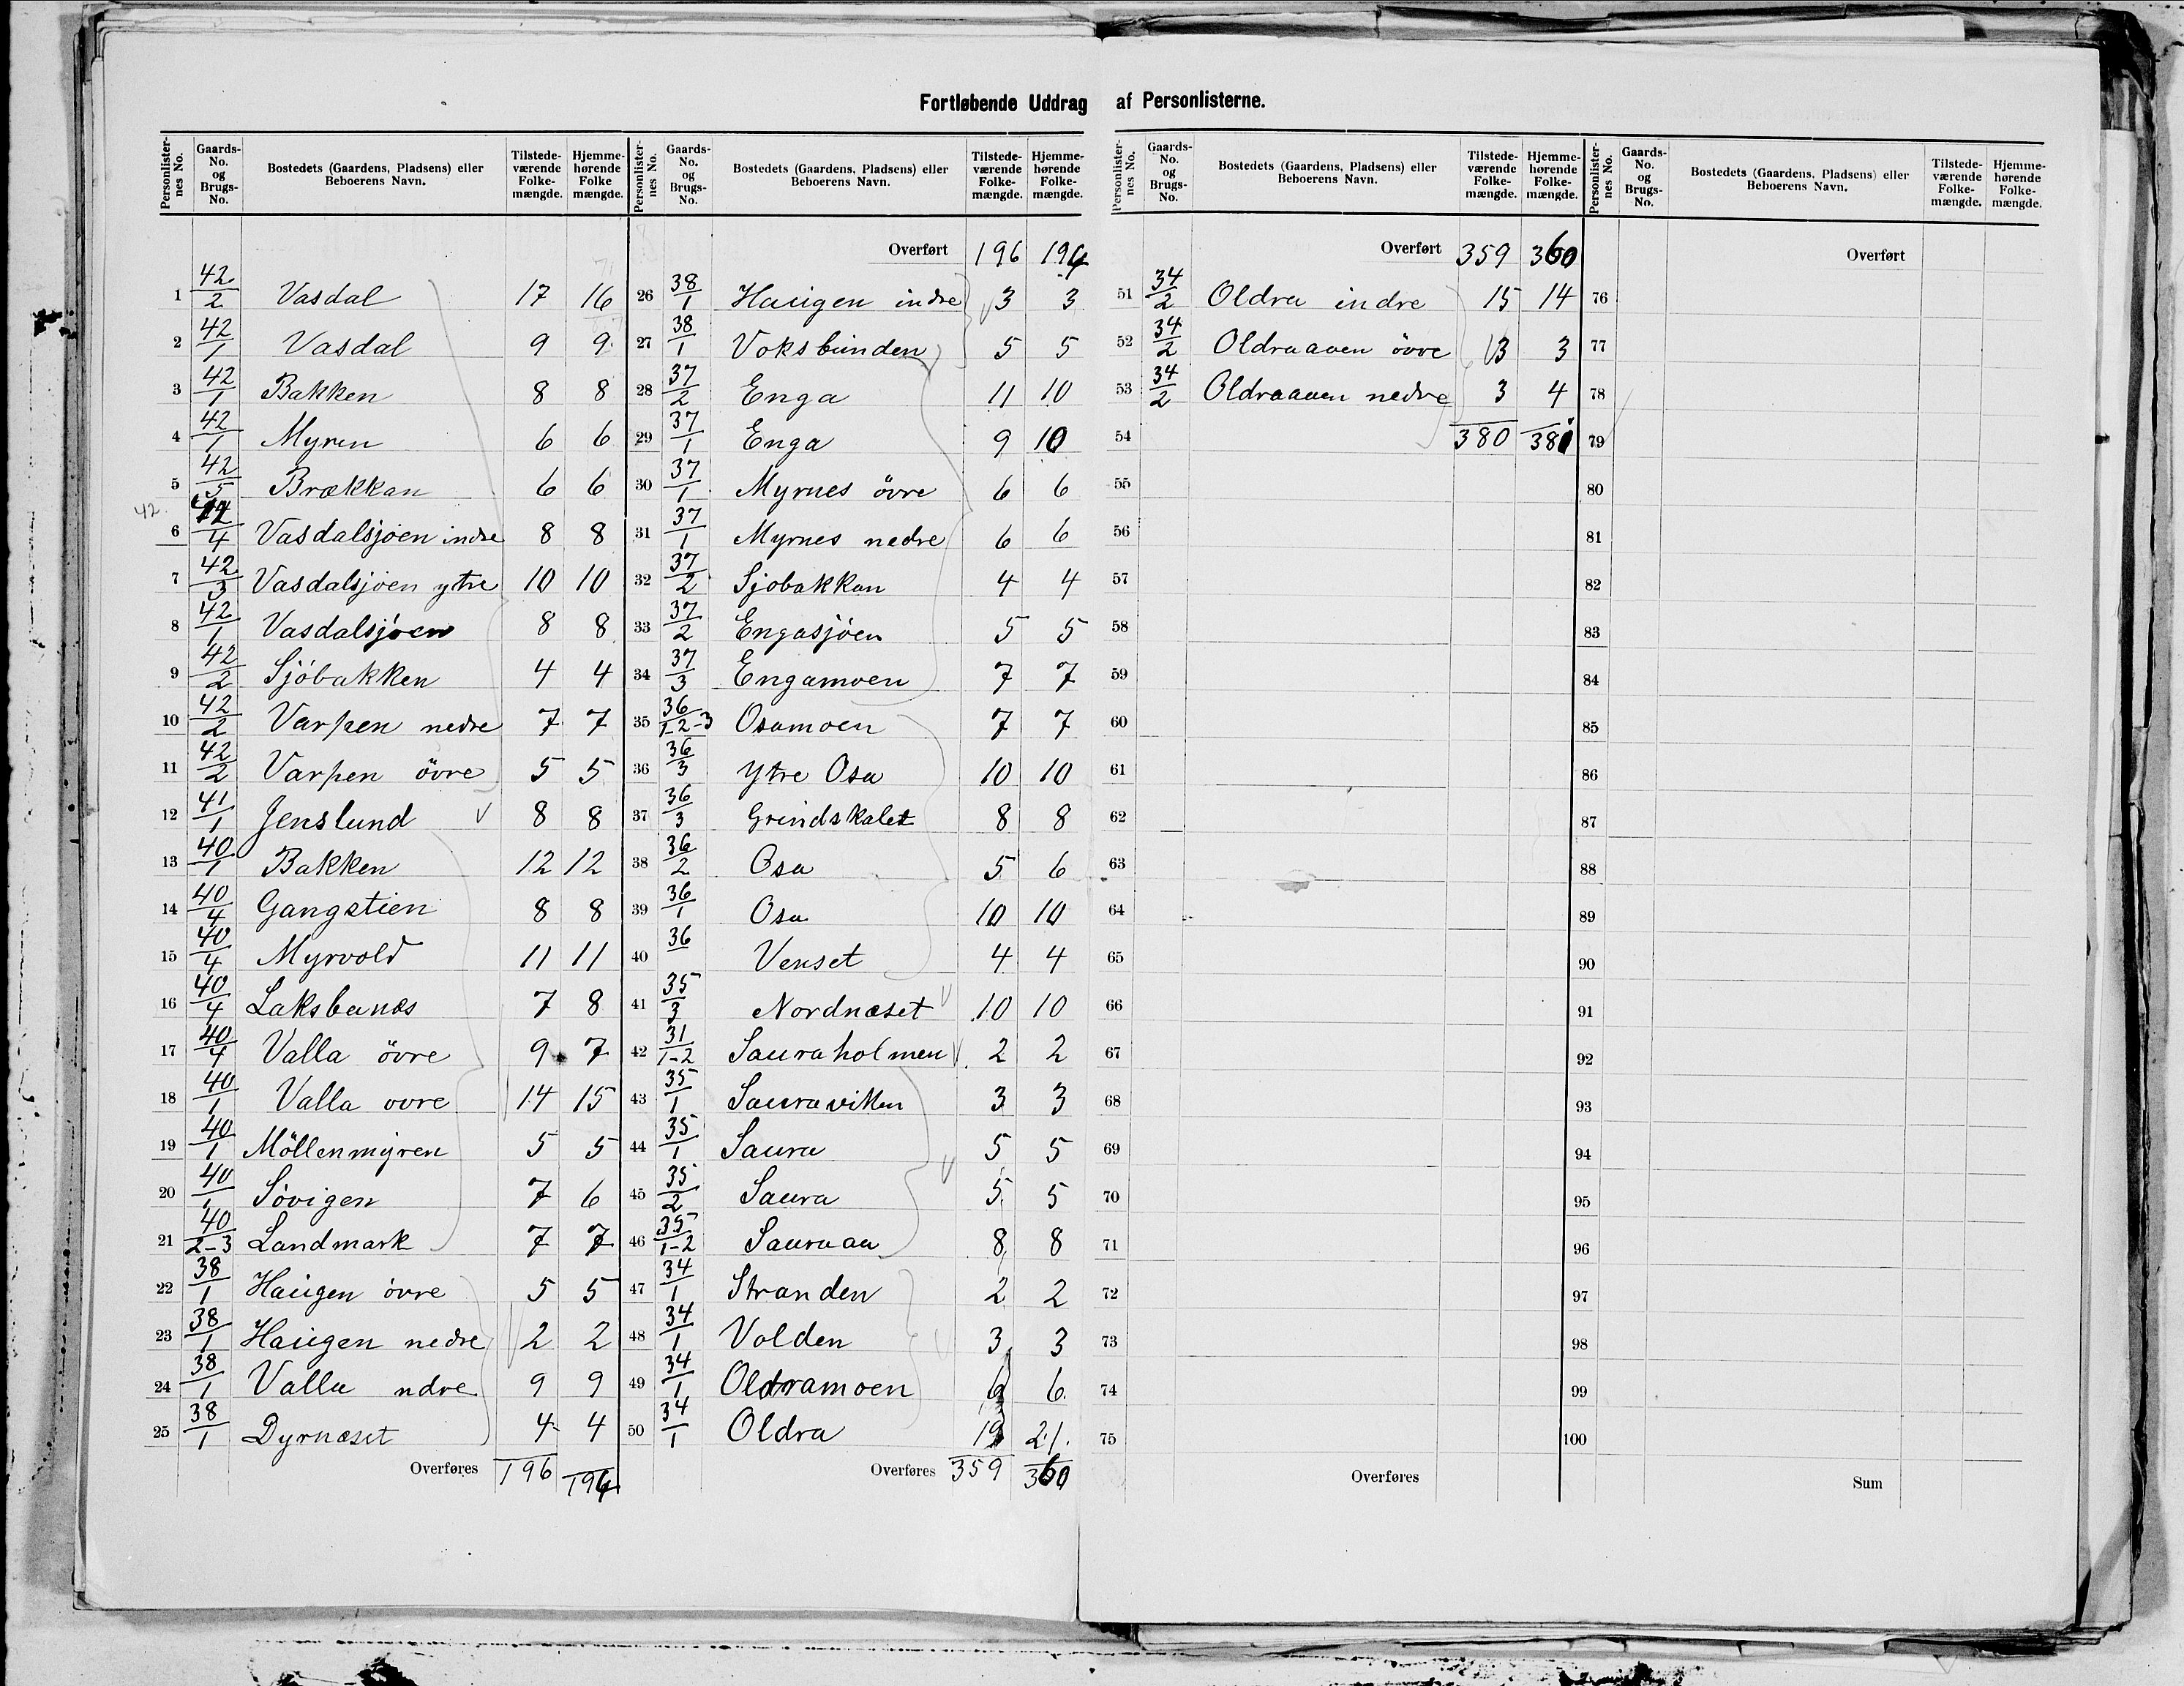 Fortløbende Uddrag af Personlisterne.
Personlisternes No. Gaards-No. og Brugs-No. Bostedets (Gaardens, Pladsens) eller Beboerens Navn. Tilstedeværende Folkemængde. Hjemmehørende Folkemængde.
1 42/2 Vasdal 17 16
2 42/1 Vasdal 9 9
3 42/1 Bakken 8 8
4 42/1 Myren 6 6
5 42/5 Brækkan 6 6
42
6 42/4 Vasdalsjøen indre 8 8
7 42/3 Vasdalsjøen ytre 10 10
8 42/1 Vasdalsjøen 8 8
9 42/2 Sjöbakken 4 4
10 42/2 Varpen nedre 7 7
11 42/2 Varpen övre 5 5
12 41/1 Jenslund 8 8
13 40/1 Bakken 12 12
14 40/4 Gangstien 8 8
15 40/4 Myrvold 11 11
16 40/4 Laksbunes 7 8
17 40/4 Valla övre 9 7
18 40/1 Valla ovre 14 15
19 40/1 Möllenmyren 5 5
20 40/1 Sövigen 7 6
21 40/2-3 Landmark 7 7
22 38/1 Haugen övre 5 5
23 38/1 Haugen nedre 2 2
24 38/1 Valla ndre 9 9
25 38/1 Dyrnæset 4 4
Overføres 196 194
Personlisternes No. Gaards-No. og Brugs-No. Bostedets (Gaardens, Pladsens) eller Beboerens Navn. Tilstedeværende Folkemængde. Hjemmehørende Folkemængde.
Overført 196 194
26 38/1 Haugen indre 3 3
27 38/1 Voksbunden 5 5
28 37/2 Enga 11 10
29 37/1 Enga 9 10
30 37/1 Myrnes övre 6 6
31 37/1 Myrnes nedre 6 6
32 37/2 Sjobakkan 4 4
33 37/2 Engasjöen 5 5
34 37/3 Engamoen 7 7
35 36/1-2-3 Osamoen 7 7
36 36/3 Ytre Osa 10 10
37 36/3 Grindskalet 8 8
38 36/2 Osa 5 6
39 36/1 Osa 10 10
40 36 Venset 4 4
41 35/3 Nordnæset 10 10
42 31/1-2 Sauraholmen 2 2
43 35/1 Sauraviken 3 3
44 35/1 Saura 5 5
45 35/2 Saura 5 5
46 35/1-2 Sauraaa 8 8
47 34/1 Stranden 2 2
48 34/1 Volden 3 3
49 34/1 Oldramoen 6 6
50 34/1 Oldra 19 21
Overføres 359 360
Personlisternes No. Gaards-No. og Brugs-No. Bostedets (Gaardens, Pladsens) eller Beboerens Navn. Tilstedeværende Folkemængde. Hjemmehørende Folkemængde.
Overført 359 360
51 34/2 Oldra indre 15 14
52 34/2 Oldraaaen övre 3 3
53 34/2 Oldraaaen nedre 3 4
54 380 381
55
56
57
58
59
60
61
62
63
64
65
66
67
68
69
70
71
72
73
74
75
Overføres
Personlisternes No. Gaards-No. og Brugs-No. Bostedets (Gaardens, Pladsens) eller Beboerens Navn. Tilstedeværende Folkemængde. Hjemmehørende Folkemængde.
Overført
76
77
78
79
80
81
82
83
84
85
86
87
88
89
90
91
92
93
94
95
96
97
98
99
100
Sum